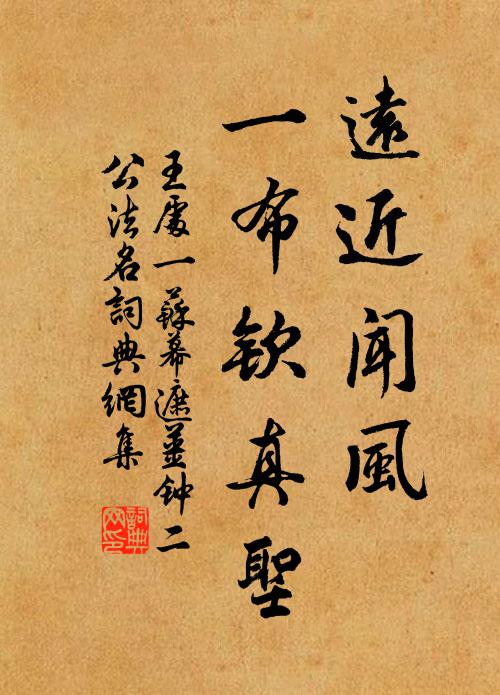 遠近聞風
一布欽真聖
王處一蘇幕遮姜钟二
公法名詞典網集
詞典网印